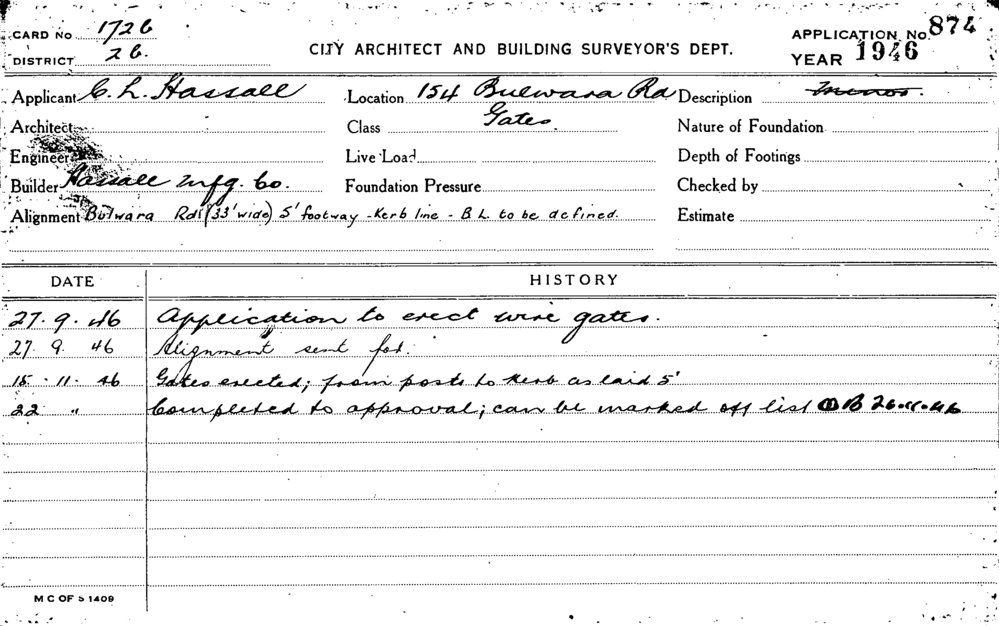 CARD NO 1726
DISTRICT 26.
CITY ARCHITECT AND BUILDING SURVEYOR'S DEPT.
APPLICATION No. 874
YEAR 1946
Applicant C. L. Hassall Location 154 Bulwara Rd Description Minor.
Architect Class Gates. Nature of Foundation
Engineer Live Load Depth of Footings
Builder Hassall Mfg. Co. Foundation Pressure Checked by
Alignment Bulwara Rd (33' wide) 5' footway - Kerb line - B L to be defined. Estimate
DATE HISTORY
27. 9. 46 Application to erect wire gates.
27. 9. 46 Alignment sent for.
15. 11. 46 Gates erected; from posts to Kerb as laid 5'
22 " Completed to approval; can be marked off list 26.11.46
M C OF S 1409